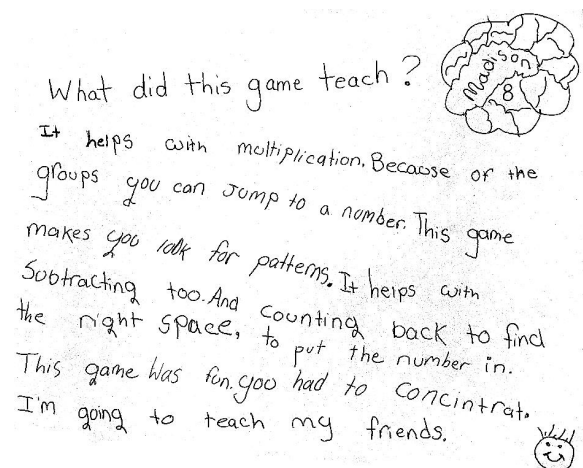 Madison
8
What did this game teach?
It helps with multiplication. Because of the
groups you can Jump to a number. This game
makes you look for patterns. It helps with
Subtracting too. And Counting back to find
the right space, to put the number in.
This game was fun. you had to concintrat.
I'm going to teach my friends.